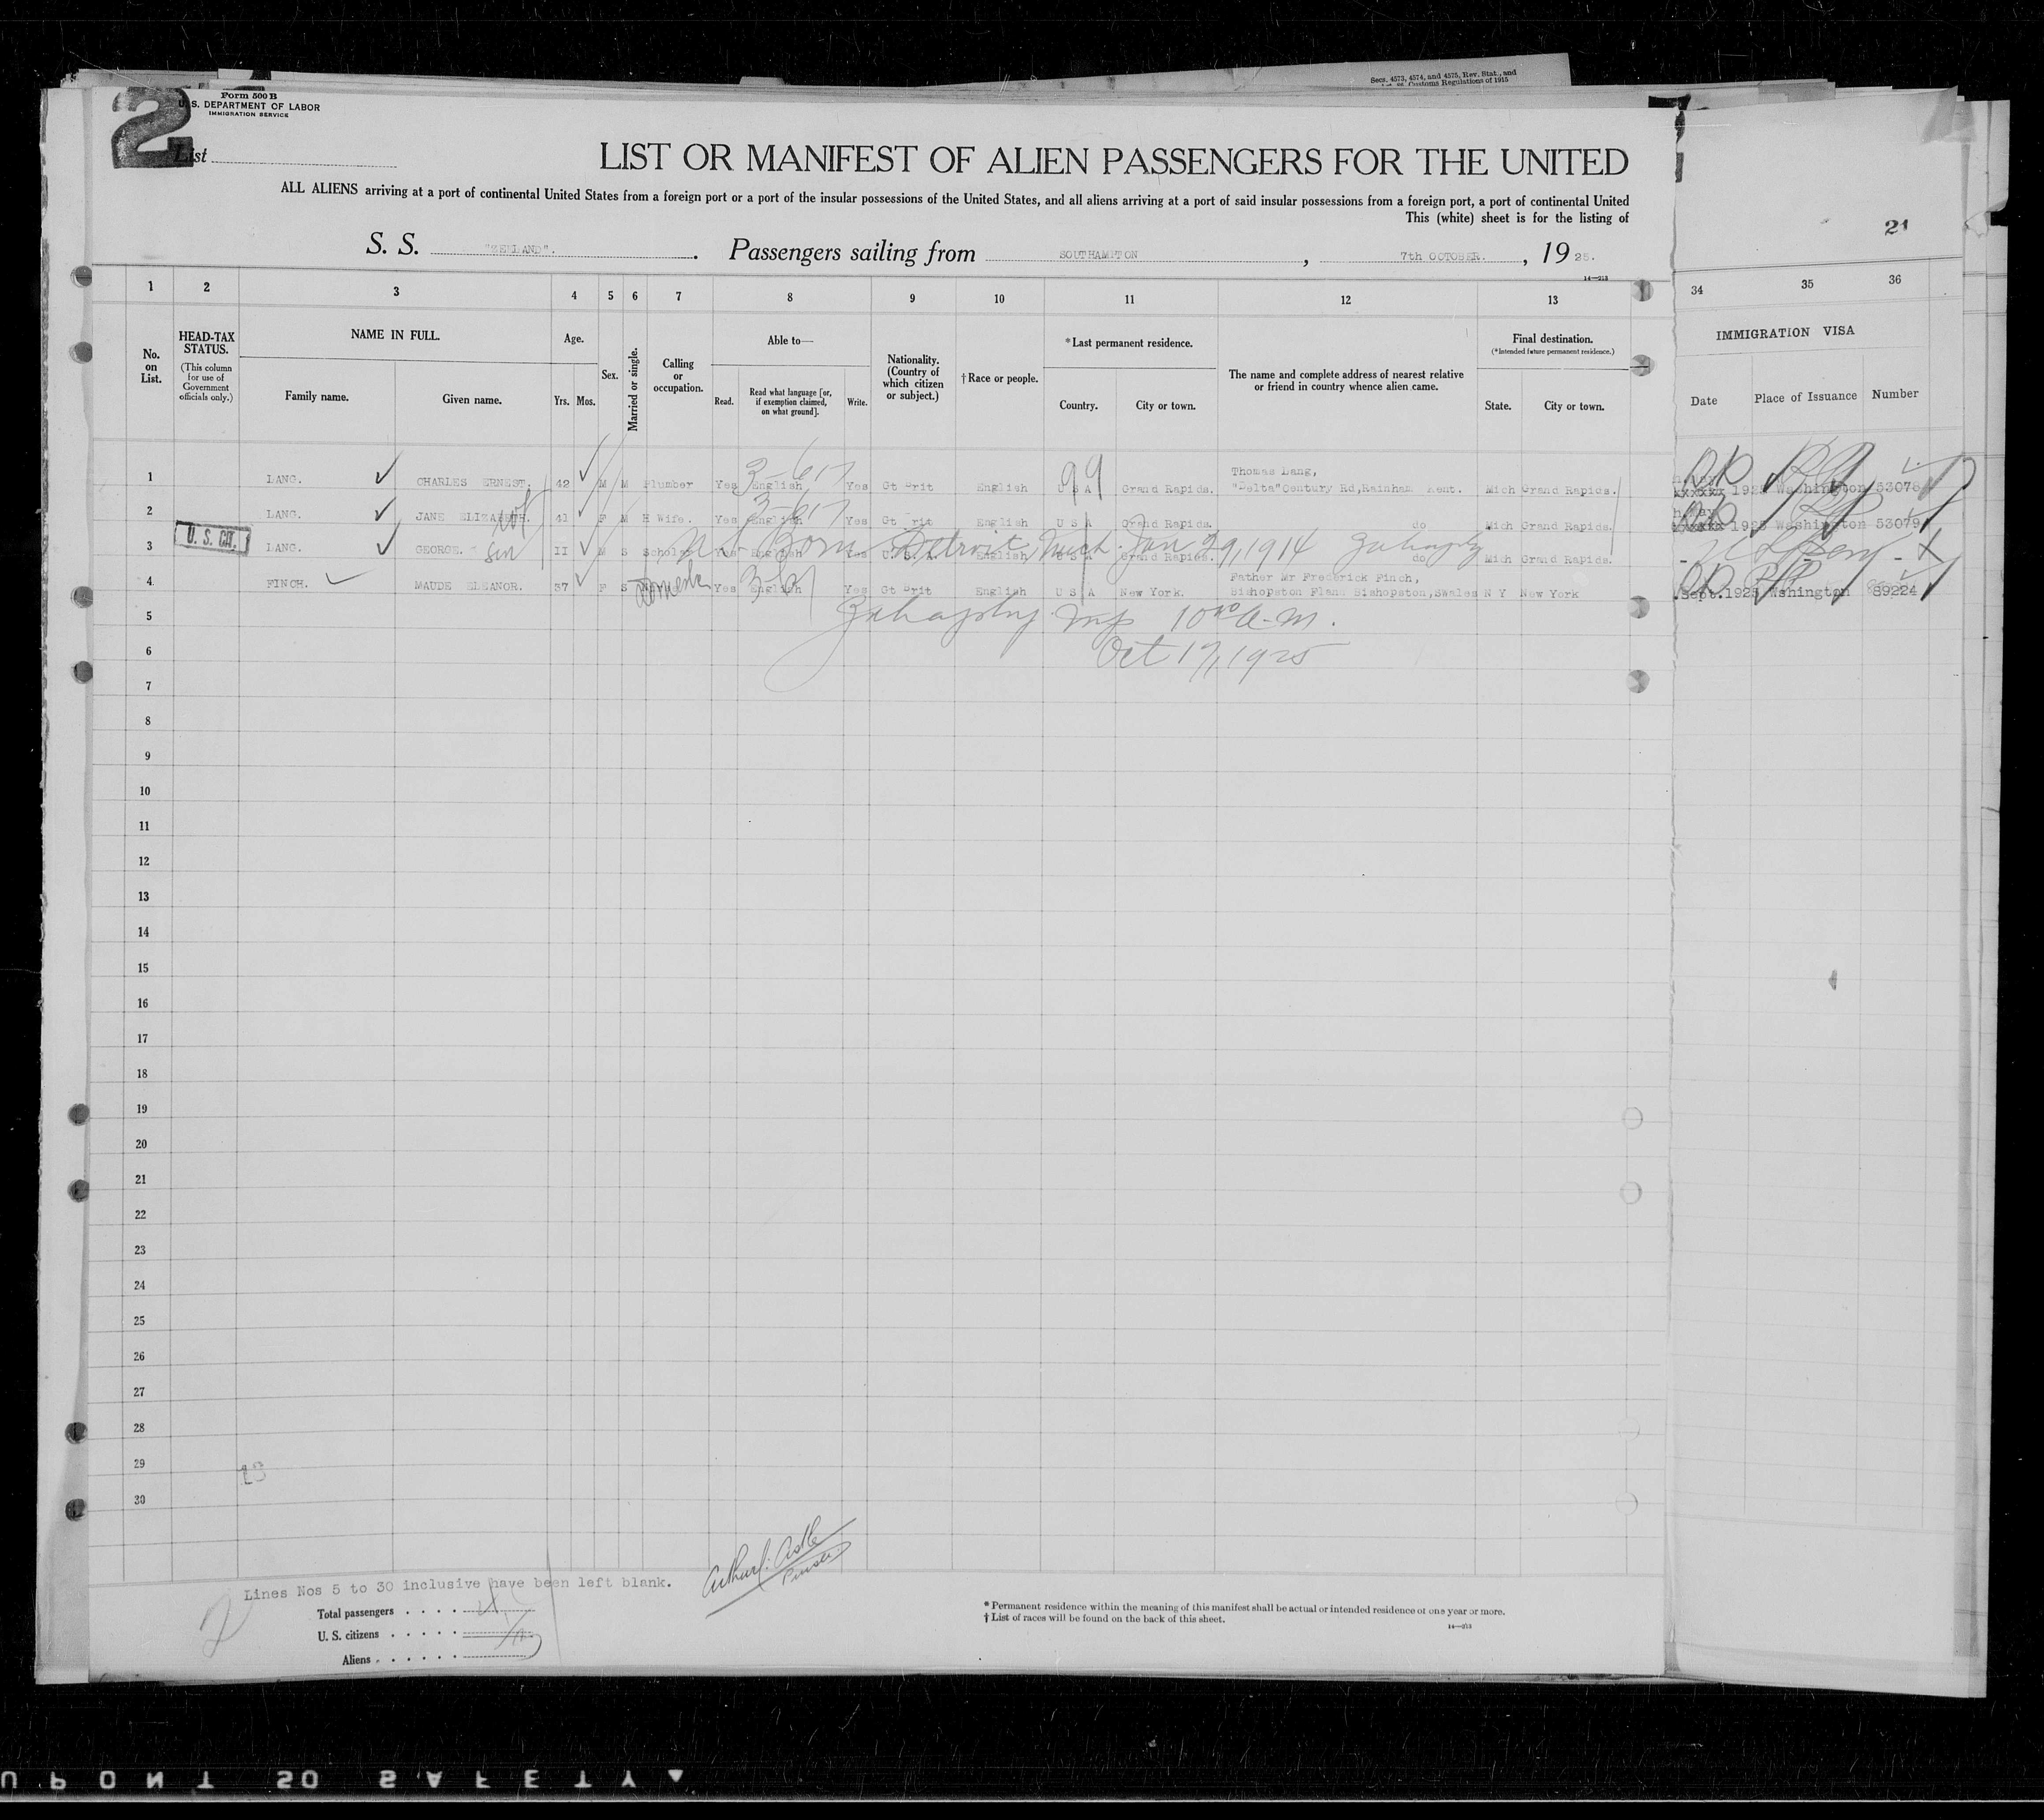 Secs. 4573, 4574, and 4575, Rev. Stat., and
Customs Regulations of 1915
2
Form 500 B
U. S. DEPARTMENT OF LABOR
IMMIGRATION SERVICE
List
LIST OR MANIFEST OF ALIEN PASSENGERS FOR THE UNITED
ALL ALIENS arriving at a port of continental United States from a foreign port or a port of the insular possessions of the United States, and all aliens arriving at a port of said insular possessions from a foreign port, a port of continental United
This (white) sheet is for the listing of
21
S. S. "ZEELAND". Passengers sailing from SOUTHAMPTON, 7th OCTOBER., 1925.
14—213
1 2 3 4 5 6 7 8 9 10 11 12 13 34 35 36
No. on List.
HEAD-TAX STATUS.
(This column for use of Government officials only.)
NAME IN FULL.
Family name. Given name.
Age.
Yrs. Mos.
Sex.
Married or single.
Calling or occupation.
Able to—
Read. Read what language [or, if exemption claimed, on what ground]. Write.
Nationality. (Country of which citizen or subject.)
† Race or people.
* Last permanent residence.
Country. City or town.
The name and complete address of nearest relative or friend in country whence alien came.
Final destination.
(* Intended future permanent residence.)
State. City or town.
IMMIGRATION VISA
Date Place of Issuance Number
Thomas Lang,
1 LANG. CHARLES ERNEST. 42 M M Plumber Yes English Yes Gt Brit English U S A Grand Rapids. "Delta"Century Rd,Rainham Kent. Mich Grand Rapids. 1925 Washington 53078
3-617 99
2 LANG. JANE ELIZABETH. 41 F M H Wife. Yes English Yes Gt Brit English U S A Grand Rapids. do Mich Grand Rapids. 1925 Washington 53079
3-617
U. S. CIT.
3 LANG. GEORGE. II M S Scholar Yes English Yes U.S.A. English U S A Grand Rapids. do Mich Grand Rapids.
Born Detroit Mich. Jan 29, 1914
Father Mr Frederick Finch,
4 FINCH. MAUDE ELEANOR. 37 F S Domestic Yes English Yes Gt Brit English U S A New York. Bishopston Flans Bishopston,Swales N Y New York Sept.1925 Wshington 89224
5
10 00 A.M.
6
Oct 17, 1925
7
8
9
10
11
12
13
14
15
16
17
18
19
20
21
22
23
24
25
26
27
28
29
30
Lines Nos 5 to 30 inclusive have been left blank.
2
Total passengers
U. S. citizens
Aliens
* Permanent residence within the meaning of this manifest shall be actual or intended residence of one year or more.
† List of races will be found on the back of this sheet.
14—213